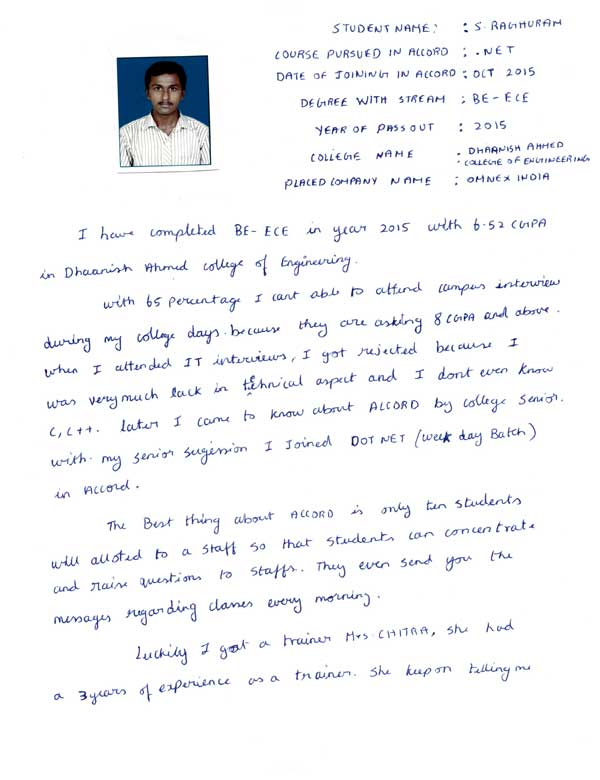 STUDENT NAME : : S. RAGHURAM
COURSE PURSUED IN ACCORD : .NET
DATE OF JOINING IN ACCORD : OCT 2015
DEGREE WITH STREAM : BE-ECE
YEAR OF PASSOUT : 2015
COLLEGE NAME : DHAANISH AHMED
: COLLEGE OF ENGINEERING
PLACED COMPANY NAME : OMNEX INDIA
I have completed BE-ECE in year 2015 with 6.52 CGPA
in Dhaanish Ahmed college of Engineering.
with 65 percentage I cant able to attend campus interview
during my college days. because they are asking 8 CGPA and above.
when I attended IT interviews, I got rejected because I
was very much lack in tehnical aspect and I dont even know
C, C++. later I came to know about ACCORD by college senior.
with my senior sugession I Joined DOT NET (week day Batch)
in Accord.
The Best thing about ACCORD is only ten students
will alloted to a staff so that students can concentrate
and raise questions to staffs. They even send you the
messages regarding classes every morning.
Luckily I got a trainer Mrs. CHITRA, she had
a 3 years of experience as a trainer. she keep on telling me